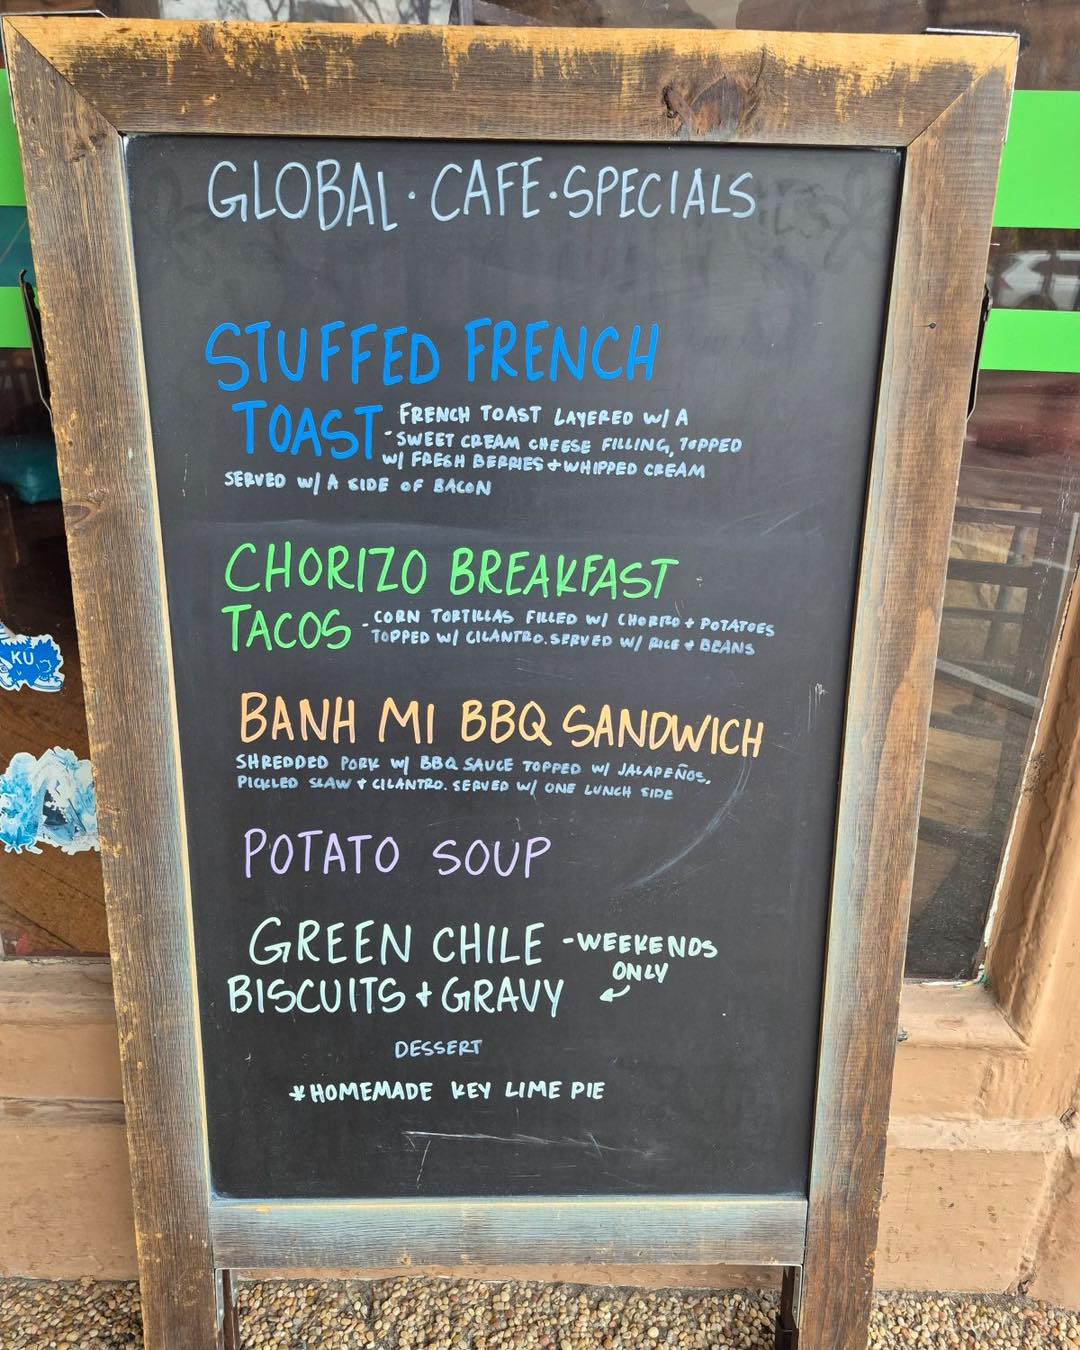 GLOBAL · CAFE · SPECIALS
STUFFED FRENCH
TOAST - FRENCH TOAST LAYERED W/ A
SWEET CREAM CHEESE FILLING, TOPPED
W/ FRESH BERRIES + WHIPPED CREAM
SERVED W/ A SIDE OF BACON
CHORIZO BREAKFAST
TACOS - CORN TORTILLAS FILLED W/ CHORIZO + POTATOES
TOPPED W/ CILANTRO. SERVED W/ RICE + BEANS
BANH MI BBQ SANDWICH
SHREDDED PORK W/ BBQ SAUCE TOPPED W/ JALAPEÑOS,
PICKLED SLAW + CILANTRO. SERVED W/ ONE LUNCH SIDE
POTATO SOUP
GREEN CHILE - WEEKENDS
ONLY
BISCUITS + GRAVY
DESSERT
*HOMEMADE KEY LIME PIE
KU